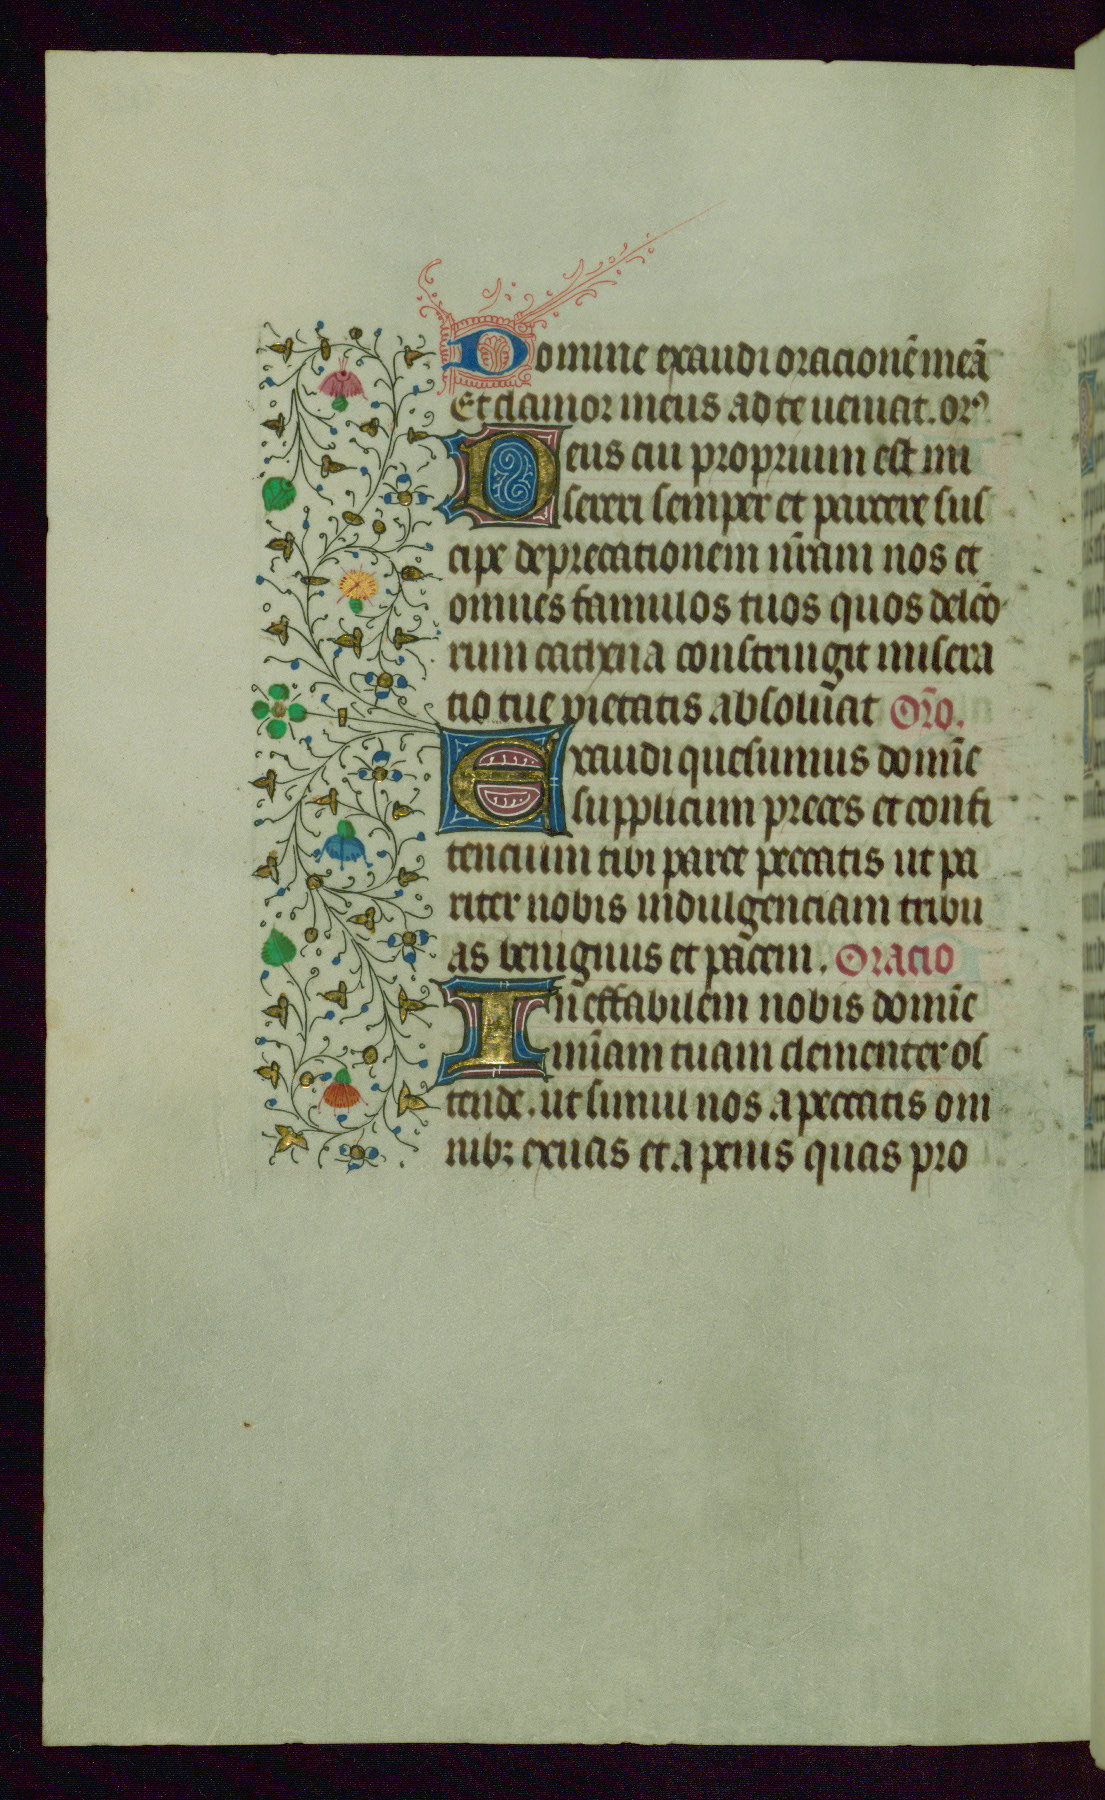 Domine exaudi oracionē meā
Et clamor meus ad te ueniat. orᵒ
Deus cui proprium est mi
sereri semper et parcere sus
cipe deprecationem nr̄am nos et
omnes famulos tuos quos delcō
rum cathena constringit misera
tio tue pietatis absolūat Or̄o.
Exaudi quesumus domīe
supplicum preces et confi
tencium tibi parce peccatis ut pa
riter nobis indulgenciam tribu
as benignus et pācem. Oracio
Ineffabilem nobis domīe
mīam tuam clementer os
tende. ut simul nos a peccatis om
nibꝫ exuas et a penis quas pro